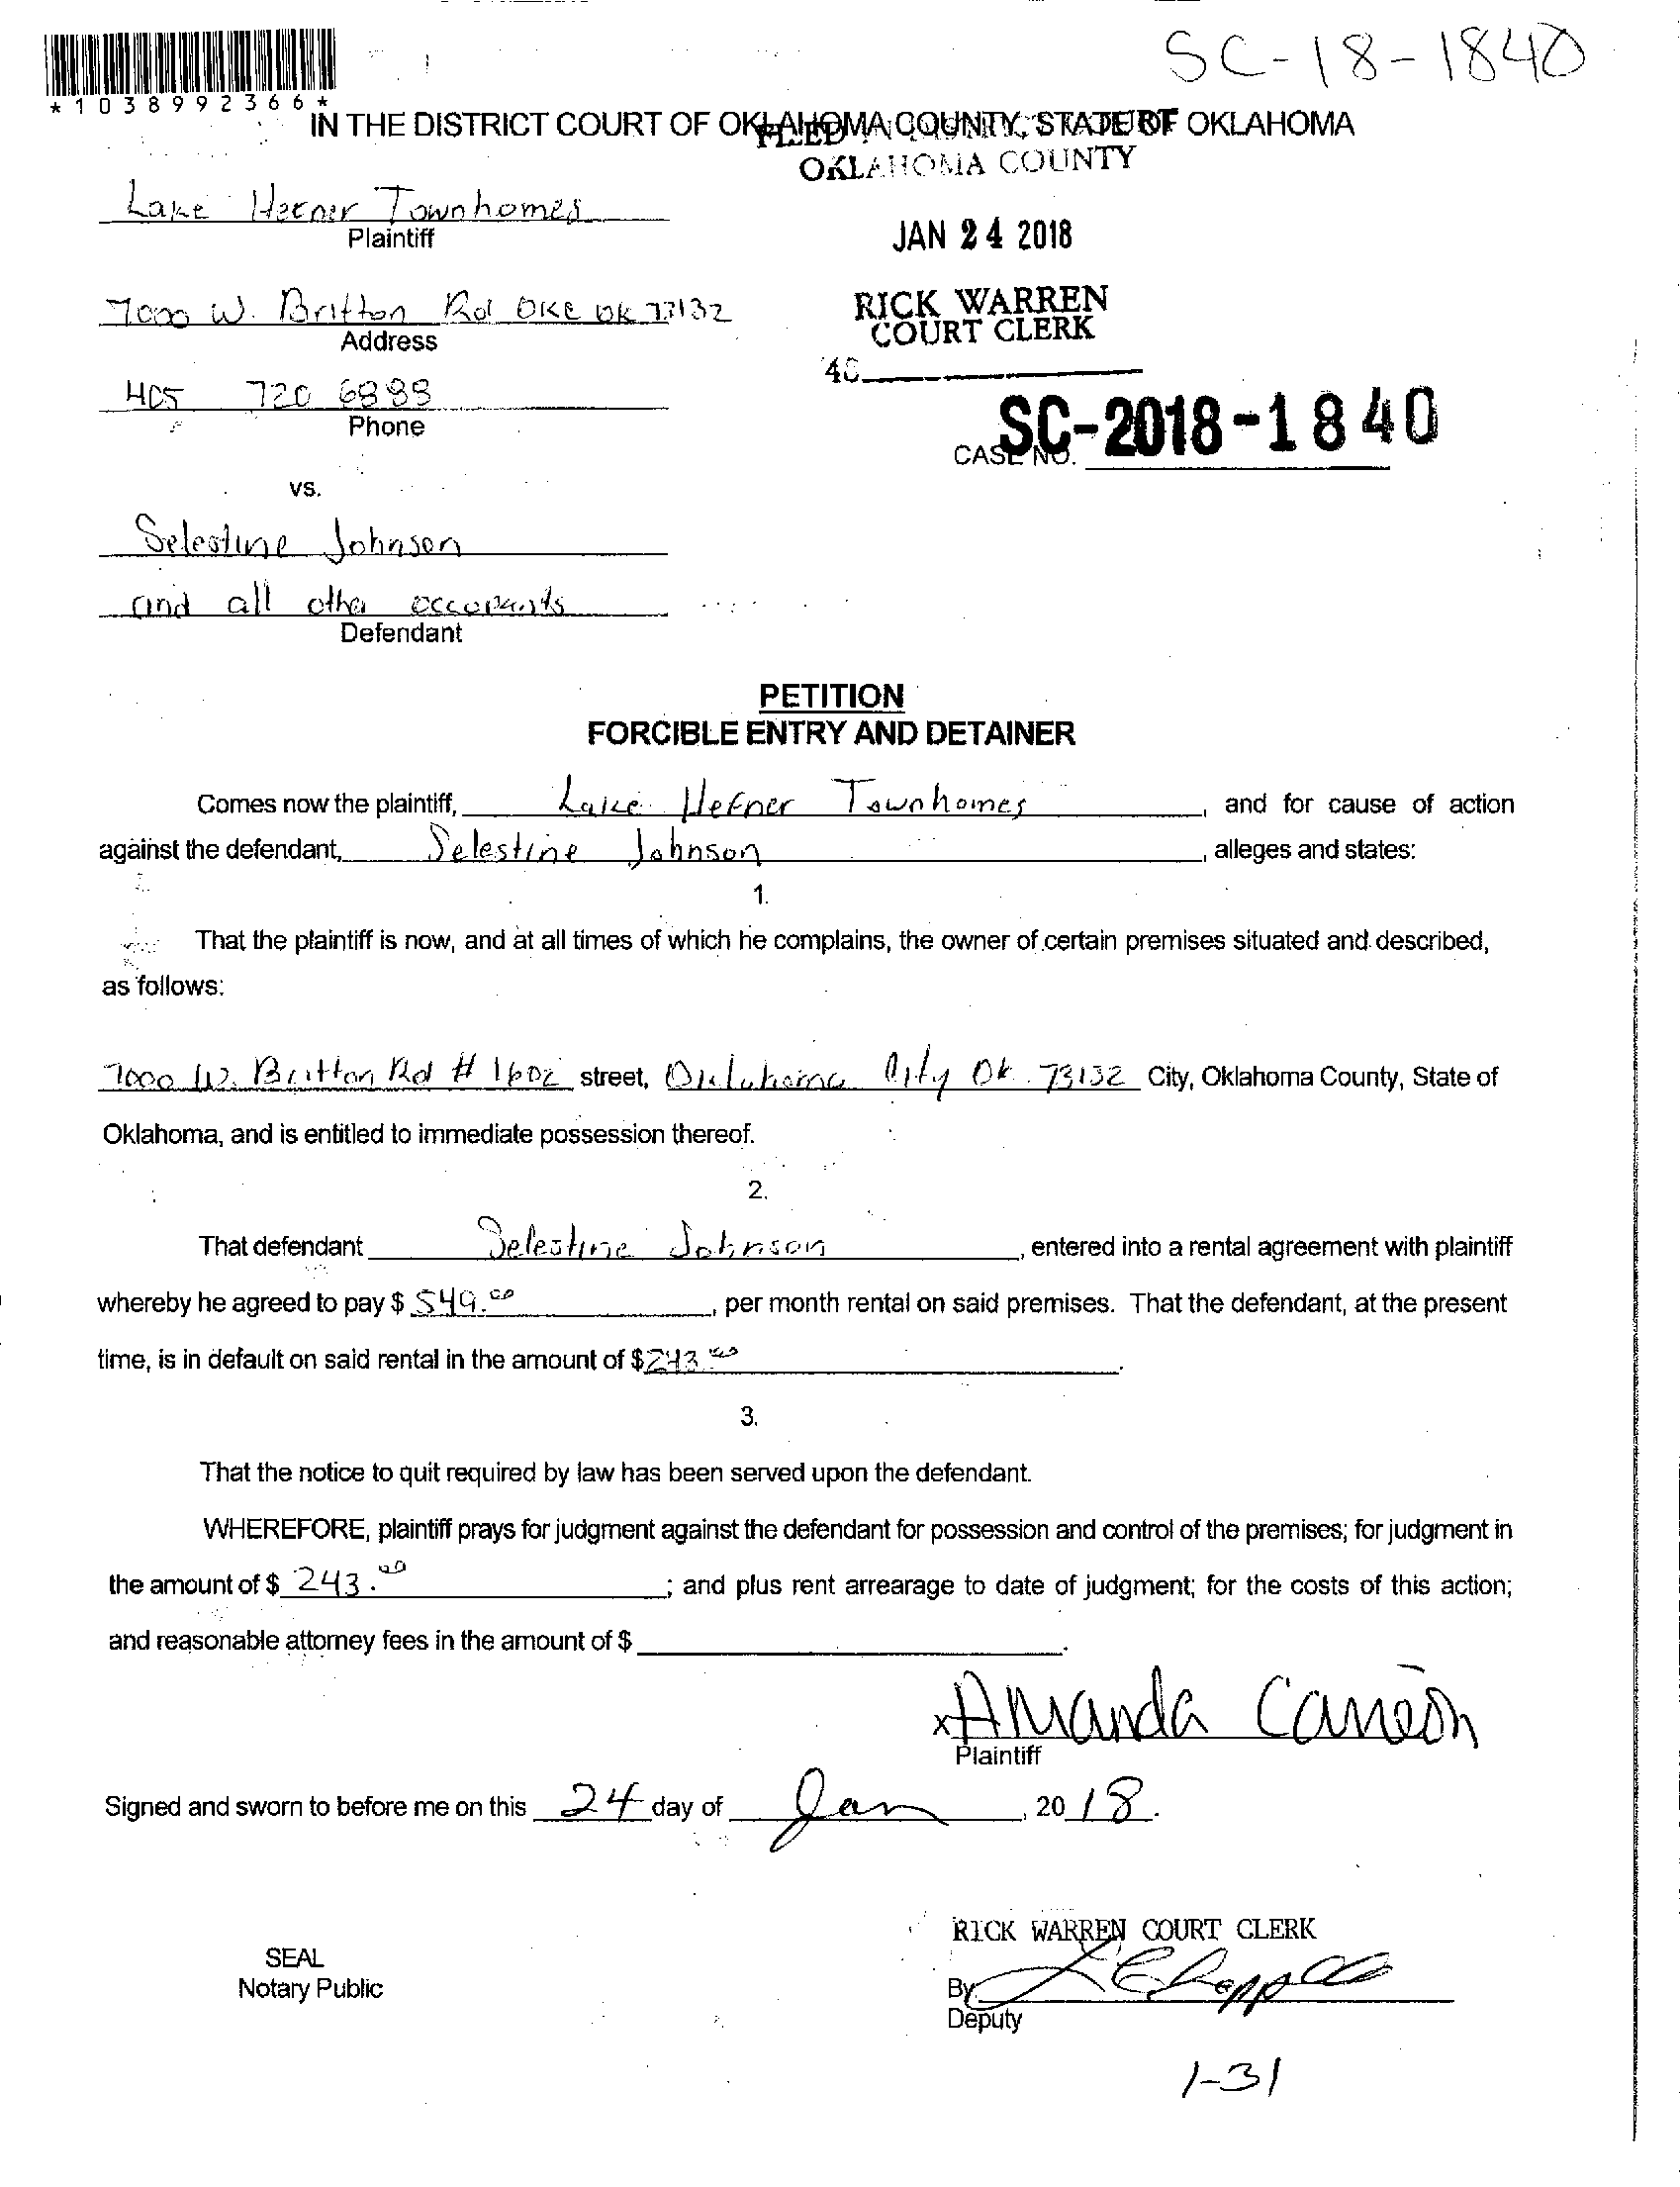 SC-18-1840
*1038992366*
IN THE DISTRICT COURT OF OKLAHOMA COUNTY, STATE OF OKLAHOMA
FILED IN DISTRICT COURT
OKLAHOMA COUNTY
Lake Hefner Townhomes
Plaintiff
JAN 24 2018
7000 W. Britton Rd OKC OK 73132
Address
RICK WARREN
COURT CLERK
405 720 6888
Phone
CASE NO. SC-2018-1840
vs.
Selestine Johnson
and all other occupants
Defendant
PETITION
FORCIBLE ENTRY AND DETAINER
Comes now the plaintiff, Lake Hefner Townhomes, and for cause of action
against the defendant, Selestine Johnson, alleges and states:
1.
That the plaintiff is now, and at all times of which he complains, the owner of certain premises situated and described,
as follows:
7000 W. Britton Rd # 1602 street, Oklahoma City Ok. 73132 City, Oklahoma County, State of
Oklahoma, and is entitled to immediate possession thereof.
2.
That defendant Selestine Johnson, entered into a rental agreement with plaintiff
whereby he agreed to pay $ 549.00, per month rental on said premises. That the defendant, at the present
time, is in default on said rental in the amount of $243.00.
3.
That the notice to quit required by law has been served upon the defendant.
WHEREFORE, plaintiff prays for judgment against the defendant for possession and control of the premises; for judgment in
the amount of $ 243.00; and plus rent arrearage to date of judgment; for the costs of this action;
and reasonable attorney fees in the amount of $
x Amanda Carreon
Plaintiff
Signed and sworn to before me on this 24 day of Jan, 2018.
RICK WARREN COURT CLERK
SEAL
Notary Public
By
Deputy
1-31